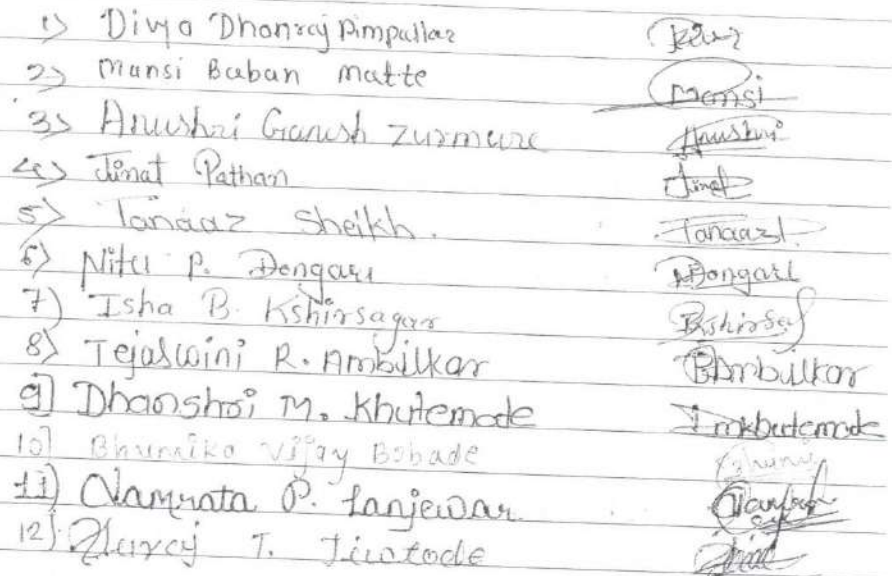 1) Divya Dhanraj Pimpalkar
2) Mansi Baban Matte Mansi
3) Anushri Ganesh Zurmure Anushri
4) Jinat Pathan Jinat
5) Tanaaz Sheikh. Tanaaz
6) Nitu P. Dongare
7) Isha B. Kshirsagar
8) Tejaswini R. Ambilkar RAmbilkar
9] Dhanshri M. Khutemade
10] Bhumika Vijay Bobade
11) Namrata P. Lanjewar
12) T. Jivtode